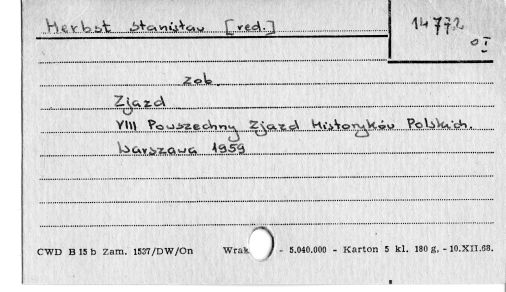 Herbst Stanisław [red.]
14772
O I
zob.
Zjazd
VIII Powszechny Zjazd Historyków Polskich.
Warszawa 1959
CWD B 15 b Zam. 1537/DW/On Wrak - 5.040.000 - Karton 5 kl. 180 g. - 10.XII.68.